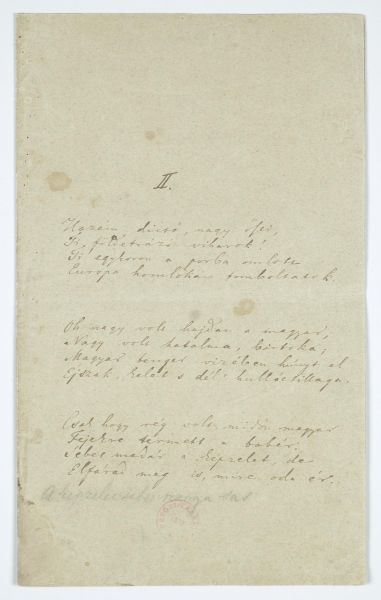 II.
Hazám dicső, nagy ősei,
Ti, földetrázó viharok!
Ti egykoron a porba omlott
Európa homlokán tomboltatok.
Oh nagy volt hajdan a magyar,
Nagy volt hatalma, birtoka;
Magyar tenger vizében húnyt el
Éjszak, kelet s dél hullócsillaga.
Csak hogy rég volt, midőn magyar
Fejekre termett a babér.
Sebes madár a képzelet, de
Elfárad még is, mire oda ér.